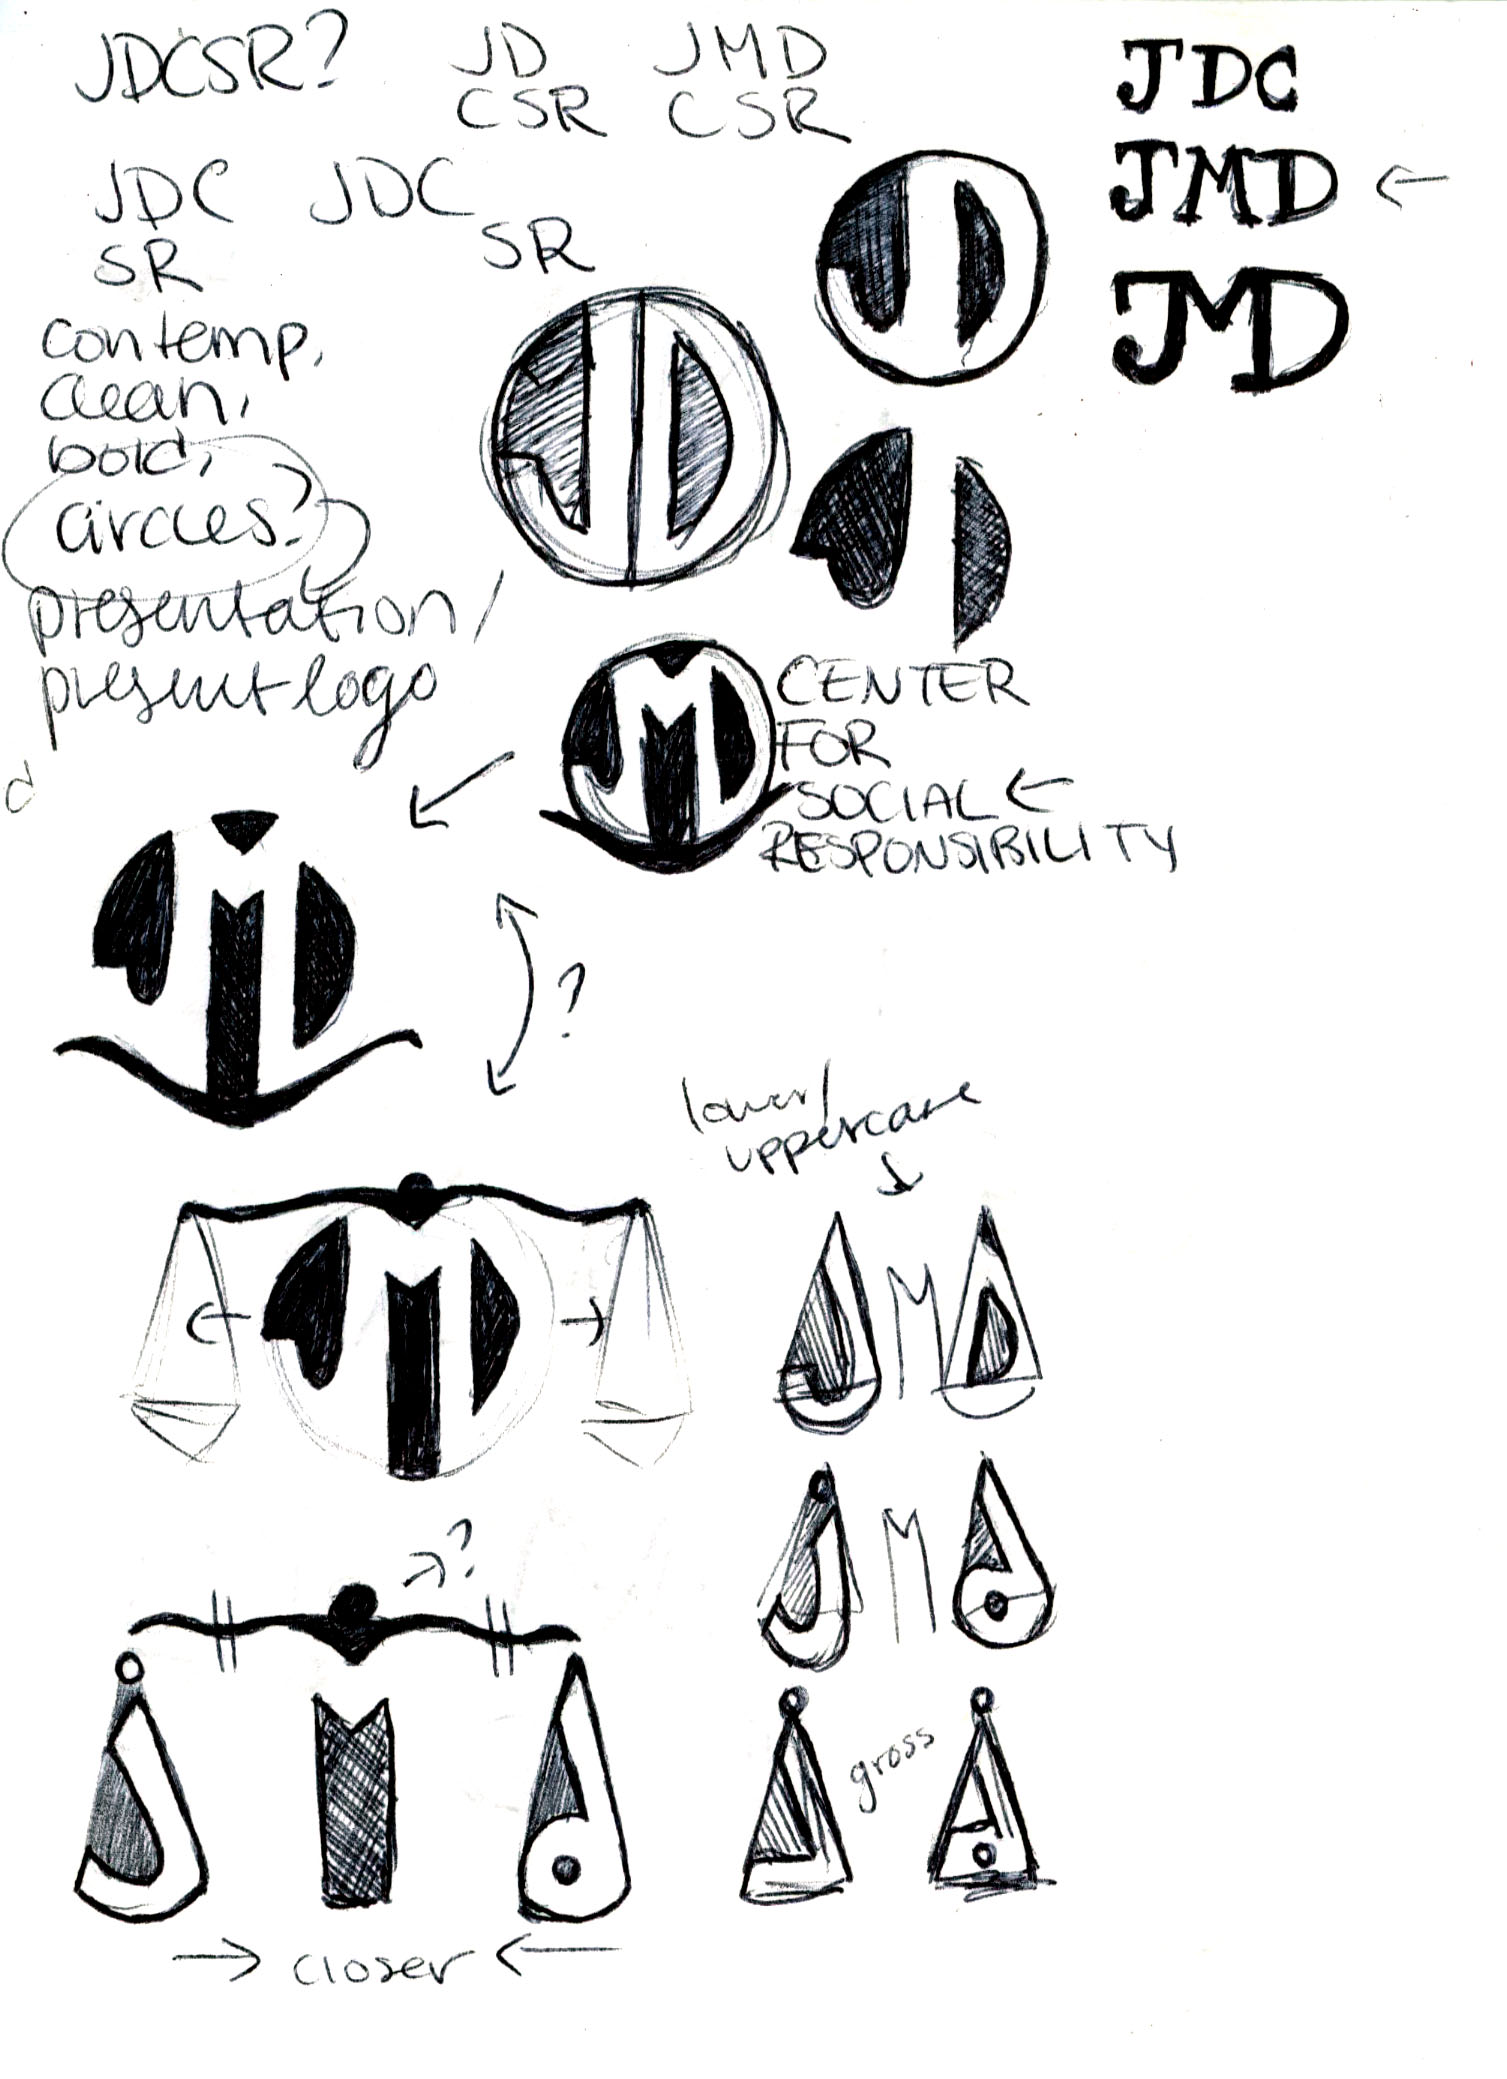 JDCSR?
JD
CSR
JMD
CSR
JDC
JMD
JMD
JDC
SR
JDC
SR
contemp,
clean,
bold,
circles?
presentation/
present logo
JD
JD
JMD
CENTER
FOR
SOCIAL
RESPONSIBILITY
d
JMD
?
lower/
uppercase
JMD
J M D
J M d
?
J M d
gross
closer